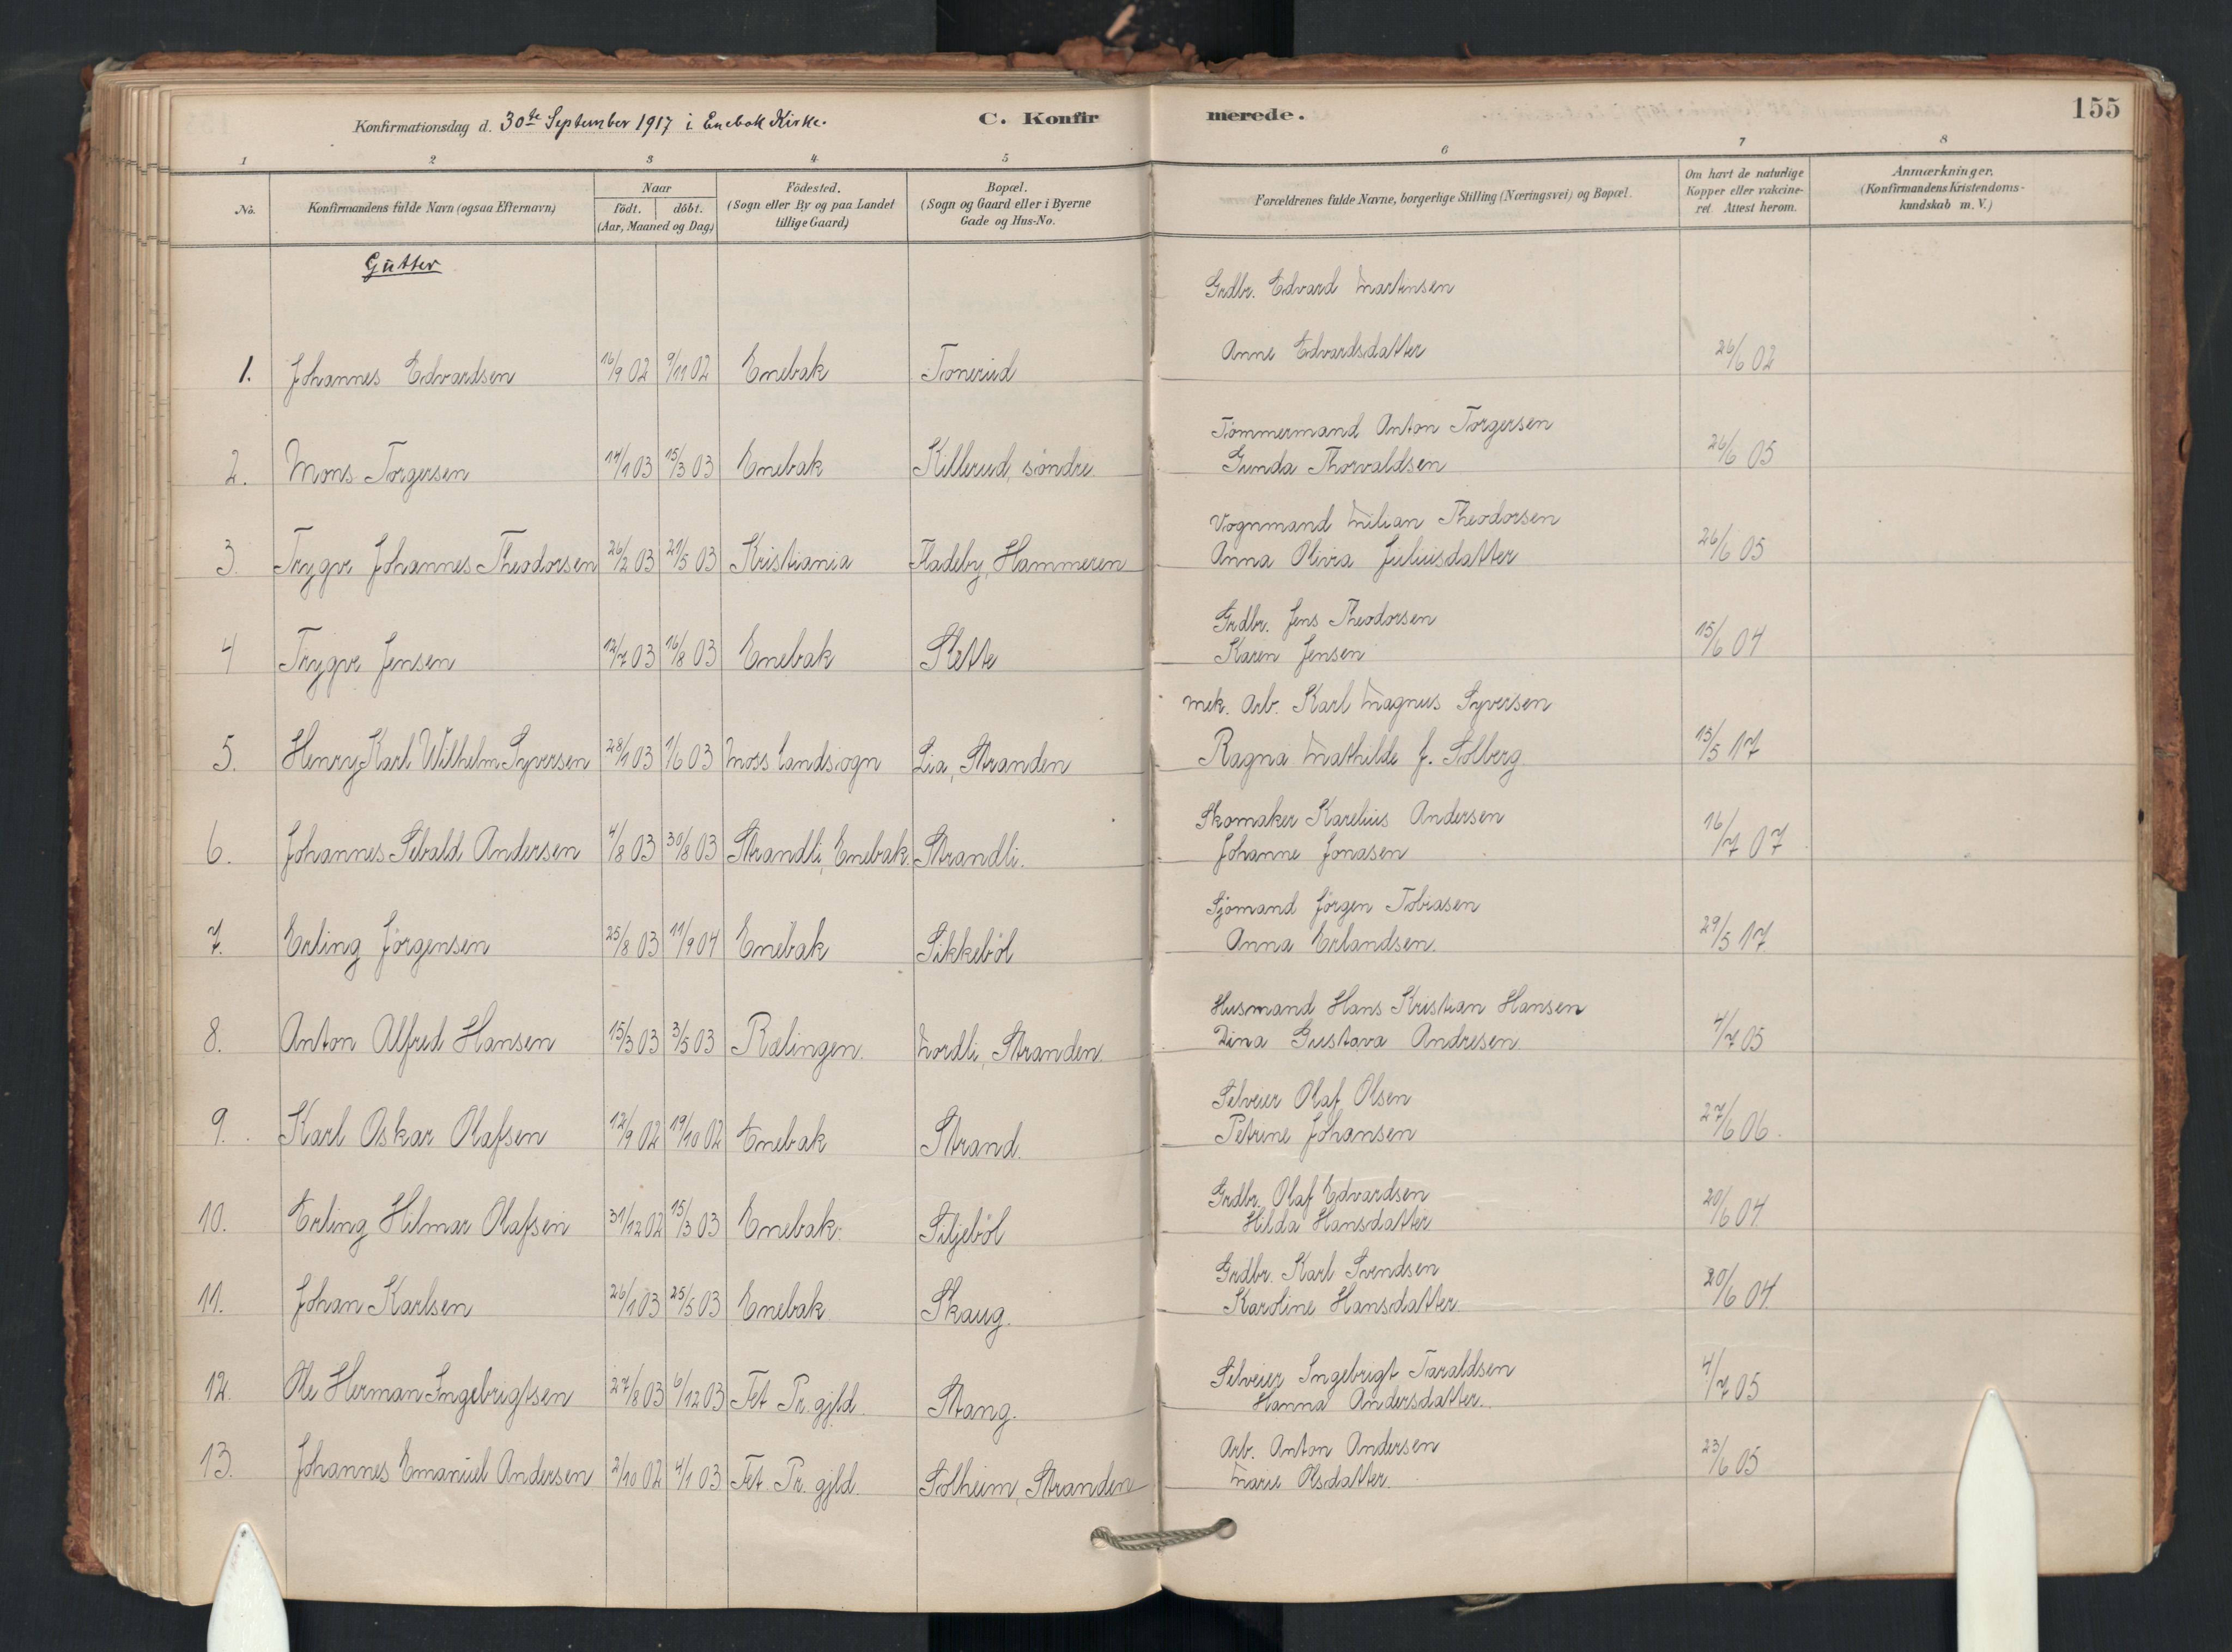 Konfirmationsdag d. 30te September 1917 i Enebak Kirke.
C. Konfirmerede.
155
1 2 3 4 5 6 7 8
No.
Konfirmandens fulde Navn (ogsaa Efternavn)
Naar
födt. döbt.
(Aar, Maaned og Dag)
Födested.
(Sogn eller By og paa Landet
tillige Gaard)
Bopæl.
(Sogn og Gaard eller i Byerne
Gade og Hus-No.
Forældrenes fulde Navne, borgerlige Stilling (Næringsvei) og Bopæl.
Om havt de naturlige
Kopper eller vakcine-
ret. Attest herom.
Anmærkninger.
(Konfirmandens Kristendoms-
kundskab m. V.)
Gutter
Grdbr. Edvard Martinsen
1. Johannes Edvardsen 16/9 02 9/11 02 Enebak Tonerud Anne Edvardsdatter 26/6 02
Tømmermand Anton Torgersen
2. Mons Torgersen 14/1 03 15/3 03 Enebak Killerud, söndre Gunda Thorvaldsen 26/6 05
Vognmand Milian Theodorsen
3. Trygve Johannes Theodorsen 26/2 03 21/5 03 Kristiania Fladeby, Hammeren Anna Olivia Juliusdatter 26/6 05
Grdbr. Jens Theodorsen
4 Trygve Jensen 12/7 03 16/8 03 Enebak Slette Karen Jensen 15/6 04
mek. Arb. Karl Magnus Syversen
5. Henry Karl Wilhelm Syversen 28/1 03 1/6 03 Moss landsogn Lia, Stranden Ragna Mathilde f. Solberg 13/5 17
Skomaker Karelius Andersen
6. Johannes Sebald Andersen 4/8 03 30/8 03 Strandli, Enebak Strandli. Johanne Jonasen 16/7 07
Sjömand Jörgen Tobiasen
7. Erling Jörgensen 25/8 03 11/9 04 Enebak Sikkeböl Anna Erlandsen. 29/5 17
Husmand Hans Kristian Hansen
8. Anton Alfred Hansen 15/3 03 3/5 03 Rælingen. Nordli, Stranden. Dina Gustava Andresen 4/7 05
Selveier Olaf Olsen
9. Karl Oskar Olafsen 12/9 02 19/10 02 Enebak Strand. Petrine Johansen 27/6 06.
Grdbr. Olaf Edvardsen
10. Erling Hilmar Olafsen 31/12 02 15/3 03 Enebak. Siljeböl Hilda Hansdatter 20/6 04
Grdbr. Karl Svendsen
11. Johan Karlsen 26/1 03 25/5 03 Enebak Skaug. Karoline Hansdatter. 20/6 04
Selveier Ingebrigt Taraldsen
12. Ole Herman Ingebrigtsen 27/8 03 6/12 03 Fet Pr. gjld. Stang. Hanna Andersdatter. 4/7 05
Arb. Anton Andersen
13. Johannes Emanuel Andersen 2/10 02 4/1 03 Fet Pr. gjld. Solheim, Stranden Marie Olsdatter. 23/6 05